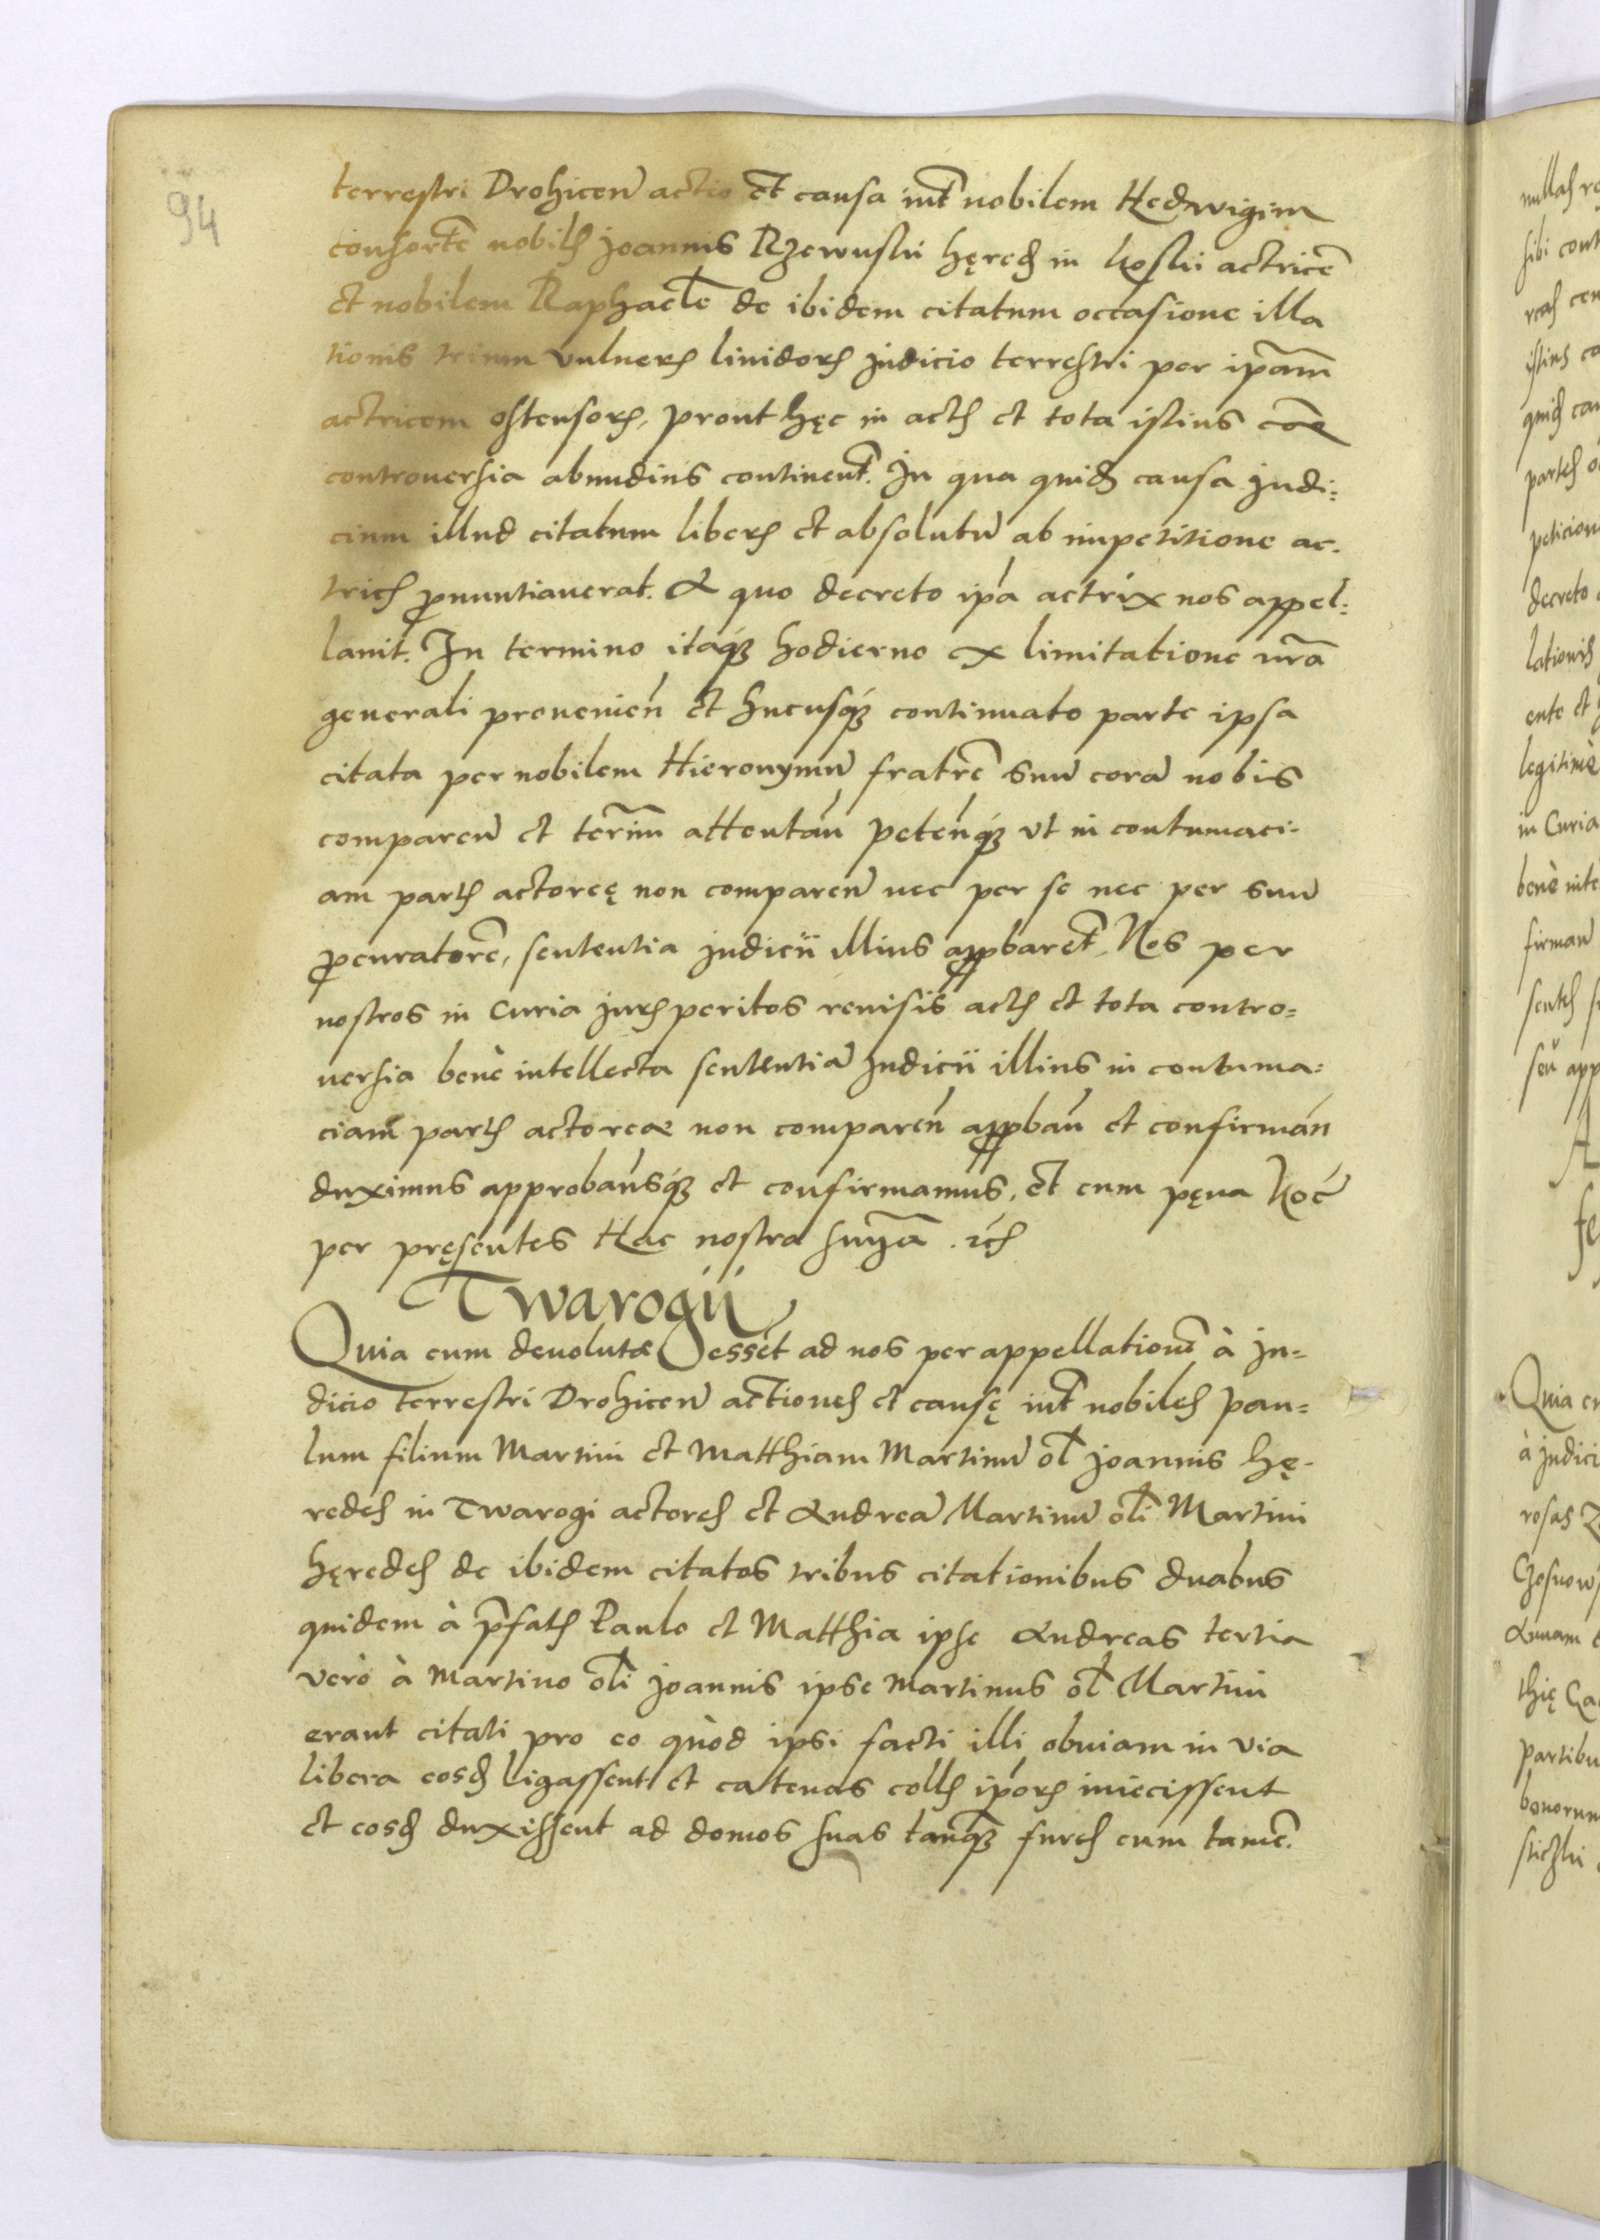 94
terrestri Drohicen̄ actio et causa int̄ nobilem Hedwigim
consort̄e nobilꝭ Joannis Rzewuski hęredꝭ in Koski actricē
et nobilem Raphael̄e de ibidem citatum occasione illa
tionis trium vulnerꝝ lividorꝝ judicio terrestri per ip̄am
actricem ostensorꝝ, prout hęc in actꝭ et tota istius
controuersia abundius continent̄. In qua quidꝭ causa judi⸗
cium illud citatum liberꝝ et absolutū ab impetitione ac⸗
tricꝭ ꝓnuntiauerat. A quo decreto ip̄a actrix nos appel⸗
lauit. In termino itaqꝫ hodierno ex limitatione nr̄a
generali prouenien̄ et hucusqꝫ continuato parte ipsa
citata per nobilem Hieronymū fratrē suū corā nobis
comparen̄ et ter̄im attentan̄ peten̄qꝫ vt in contumaci⸗
am partꝭ actoreę non comparen̄ nec per se nec per suū
ꝓcuratorē, sententia judicii illius apꝓbaret̄. Nos per
nostros in Curia jurꝭ peritos reuisis actꝭ et tota contro⸗
uersia benè intellecta sententiā judicii illius in contuma⸗
ciam partꝭ actoreæ non comparen̄ apꝓban̄ et confirman̄
duximus approbam̄usqꝫ et confirmamus. et cum pęna Koc̄
per pręsentes Hac nostra
Twarogii
Quia cum deuolutæ essēt ad nos per appellationē à ju⸗
dicio terrestri Drohicen̄ actionēs et causę int̄ nobiles Pau⸗
lum filium Martini et Matthiam Martinū ol̄ Joannis hę⸗
redes in Twarogi actores et Andreā Martinū ol̄i Martini
hęredes de ibidem citatos tribus citationibus duabus
quidem à p̄fatꝭ Paulo et Matthia ipse Andreas tertia
verò à Martino ol̄i Joannis ipse Martinus ol̄ Martini
erant citati pro eo quòd ipsi facti illi obuiam in via
libera eosdꝭ ligassent et catenas collꝭ ip̄orꝝ iniecissent
et eosdꝭ duxissent ad domos suas tanqꝫ fures cum tamē